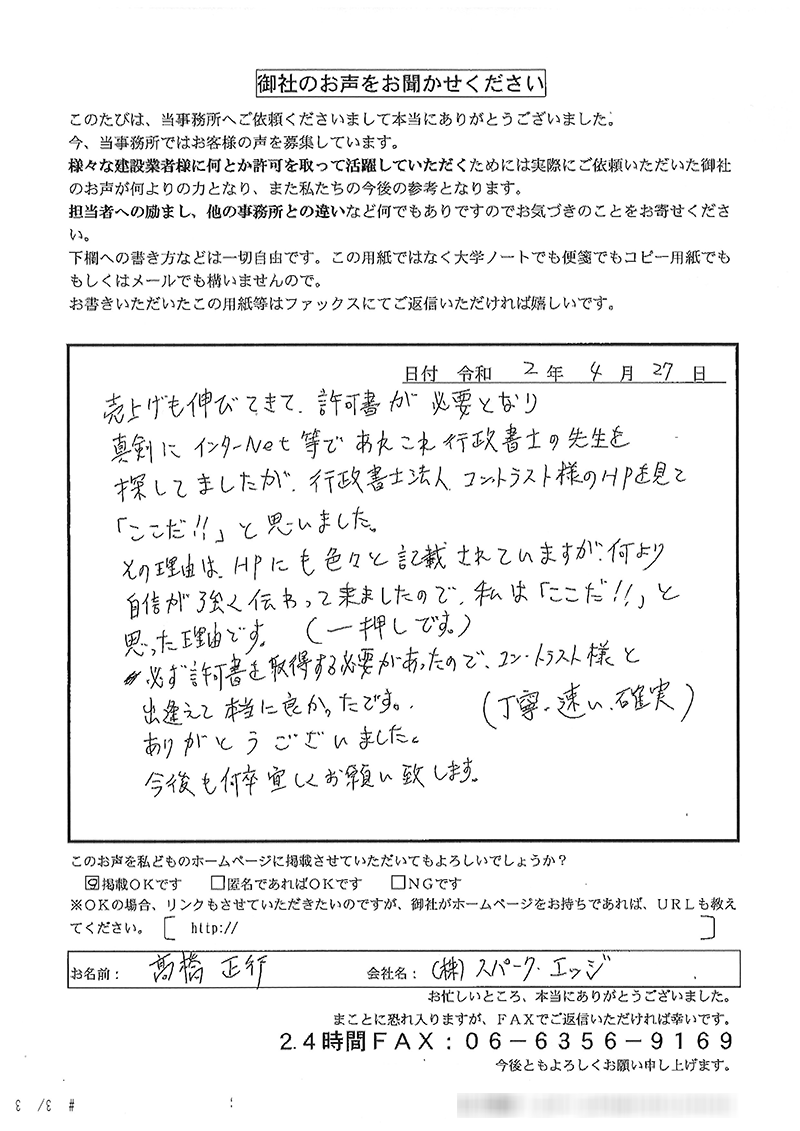 御社のお声をお聞かせください
このたびは、当事務所へご依頼くださいまして本当にありがとうございました。
今、当事務所ではお客様の声を募集しています。
様々な建設業者様に何とか許可を取って活躍していただくためには実際にご依頼いただいた御社
のお声が何よりの力となり、また私たちの今後の参考となります。
担当者への励まし、他の事務所との違いなど何でもありですのでお気づきのことをお寄せくださ
い。
下欄への書き方などは一切自由です。この用紙ではなく大学ノートでも便箋でもコピー用紙でも
もしくはメールでも構いませんので。
お書きいただいたこの用紙等はファックスにてご返信いただければ嬉しいです。
日付 令和 2 年 4 月 27 日
売上げも伸びてきて、許可書が必要となり
真剣にインターNet等であれこれ行政書士の先生を
探してましたが、行政書士法人コントラスト様のHPを見て
「ここだ!!」と思いました。
その理由は、HPにも色々と記載されていますが、何より
自信が強く伝わって来ましたので、私は「ここだ!!」と
思った理由です。 (一押しです。)
必ず許可書を取得する必要があったので、コントラスト様と
出逢えて本当に良かったです。 (丁寧、速い、確実)
ありがとうございました。
今後も何卒宜しくお願い致します。
このお声を私どものホームページに掲載させていただいてもよろしいでしょうか?
☑掲載OKです □匿名であればOKです □NGです
※OKの場合、リンクもさせていただきたいのですが、御社がホームページをお持ちであれば、URLも教え
てください。 [ http:// ]
お名前: 髙橋 正行 会社名: (株)スパーク・エッジ
お忙しいところ、本当にありがとうございました。
まことに恐れ入りますが、FAXでご返信いただければ幸いです。
24時間FAX:06-6356-9169
今後ともよろしくお願い申し上げます。
# 3/ 3